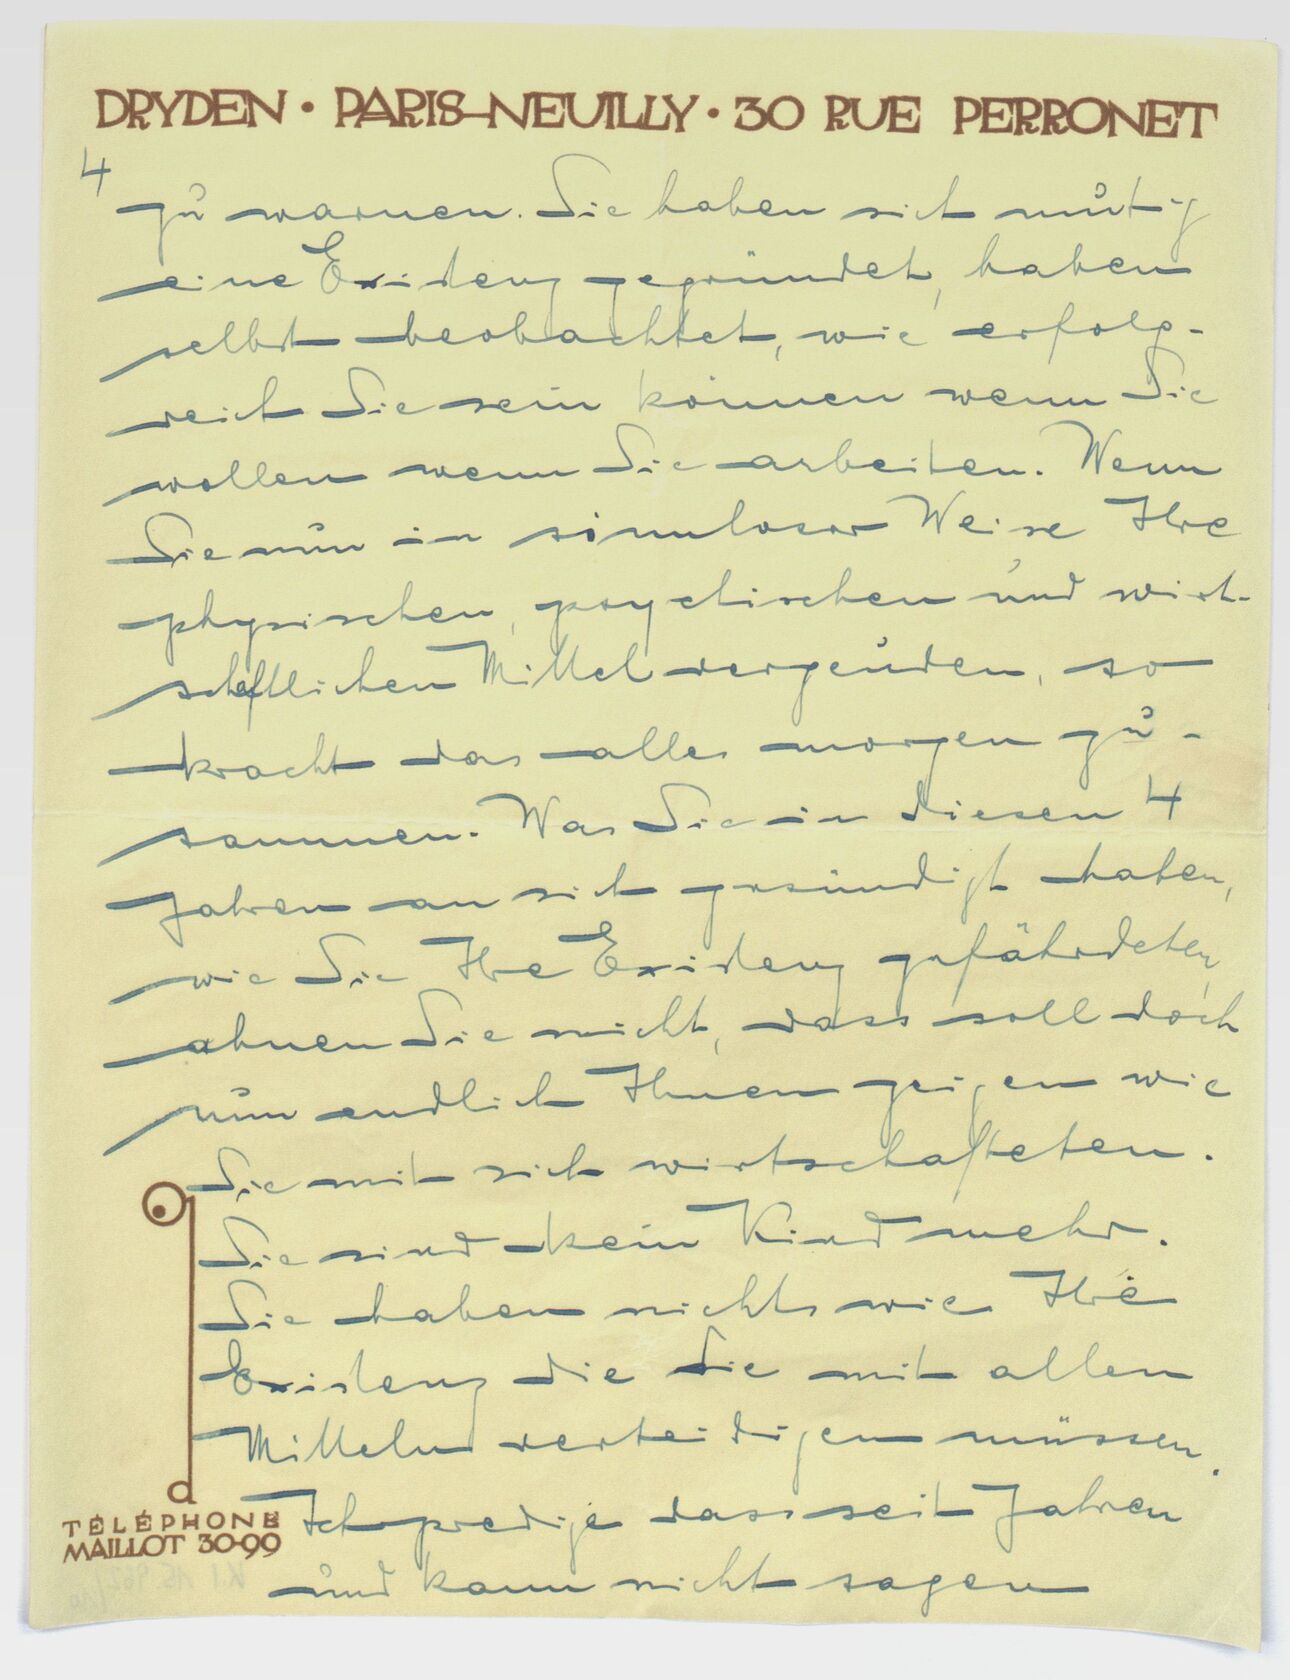 DRYDEN • PARIS-NEUILLY • 30 RUE PERRONET
4
zu warnen. Sie haben sich mutig
eine Existenz gegründet, haben
selbst beobachtet, wie erfolg-
reich Sie sein können wenn Sie
wollen wenn Sie arbeiten. Wenn
Sie nun in sinnloser Weise Ihre
physischen, psychischen und wirt-
schftlichen Mittel vergeuden, so
kracht das alles morgen zu-
sammen. Was Sie in diesen 4
Jahren an sich gesündigt haben,
wie Sie Ihre Existenz gefährdeten,
ahnen Sie nicht, dass soll doch
nun endlich Ihnen zeigen wie
Sie mit sich wirtschafteten.
Sie sind kein Kind mehr.
Sie haben nichts wie Ihre
Existenz die Sie mit allen
Mitteln verteidigen müssen.
Ich predige dass seit Jahren
und kann nicht sagen
TÉLÉPHONE
MAILLOT 30-99